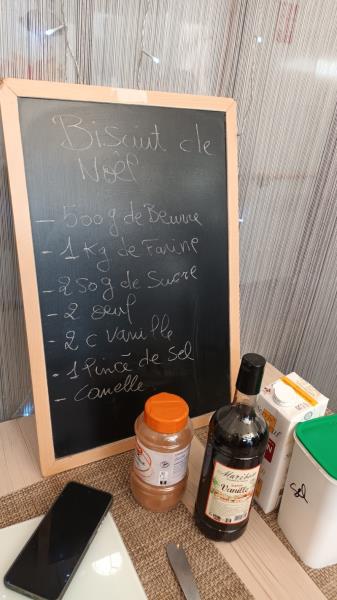 Biscuit de
Noël
- 500g de Beurre
- 1 Kg de Farine
- 250g de Sucre
- 2 oeuf
- 2 c vanille
- 1 Pincé de Sel
- Canelle
Vanille
Sel